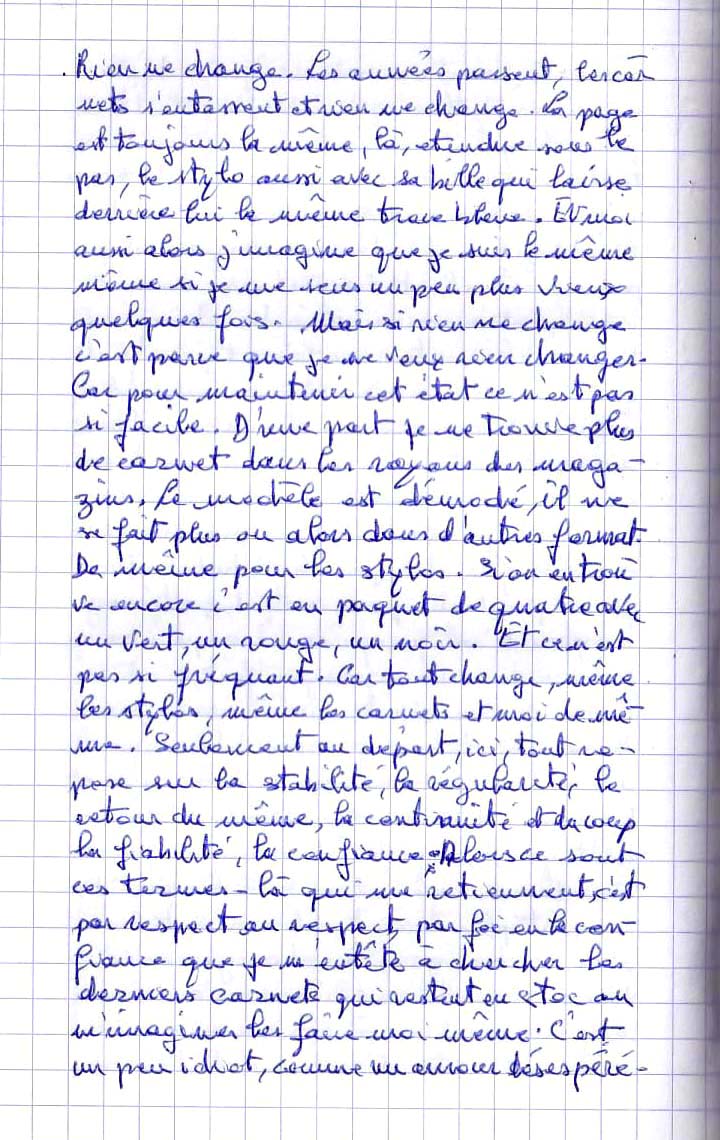 . Rien ne change. Les années passent, les car
nets s'entassent et rien ne change. La page
est toujours la même, là, etendue sous le
pas, le stylo aussi avec sa bille qui laisse
derrière lui la même trace bleue. Et moi
aussi alors j'imagine que je suis le même
même si je me sens un peu plus vieux
quelques fois. Mais si rien ne change
c'est parce que je ne veux rien changer.
Car pour maintenir cet état ce n'est pas
si facile. D'une part je ne trouve plus
de carnet dans les rayons des maga-
zins. Le modèle est démodé, il ne
se fait plus ou alors dans d'autres format.
De même pour les stylos. Si on en trou
ve encore c'est en paquet de quatre avec
un vert, un rouge, un noir. Et ce n'est
pas si fréquant. Car tout change, même
les stylos, même les carnets et moi de mê
me. Seulement au départ, ici, tout re-
pose sur la stabilité, la régularité, le
retour du même, la continuité et du coup
la fiabilité, la confiance. Alors ce sont
ces termes-là qui me retiennent, c'est
par respect au respect, par foi en la con-
fiance que je m'entête à chercher les
derniers carnets qui restent en stoc ou
m'imaginer les faire moi même. C'est
un peu idiot, comme un amour désespéré-